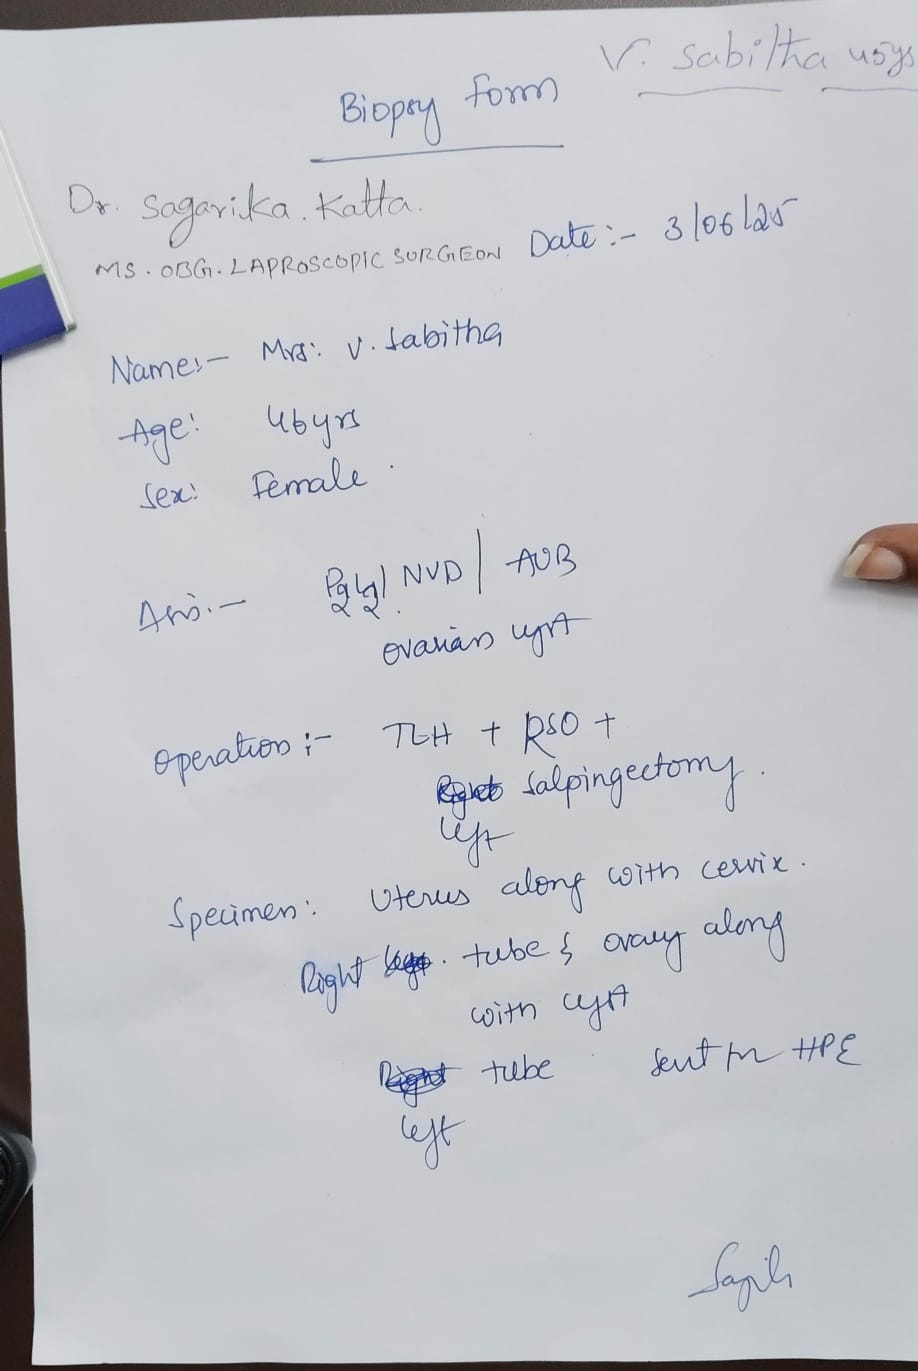 V. Sabitha 45ys
Biopsy form
Dr. Sagarika. Katta.
MS. OBG. LAPROSCOPIC SURGEON Date:- 3/06/25
Name:- Mrs. V. Sabitha
Age: 46yrs
Sex: Female
P2L2 / NVD / AUB
ovarian cyst
Operation :- TLH + RSO +
Salpingectomy.
left
Specimen: Uterus along with cervix.
Right tube & ovary along
with cyst
tube Sent for HPE
left